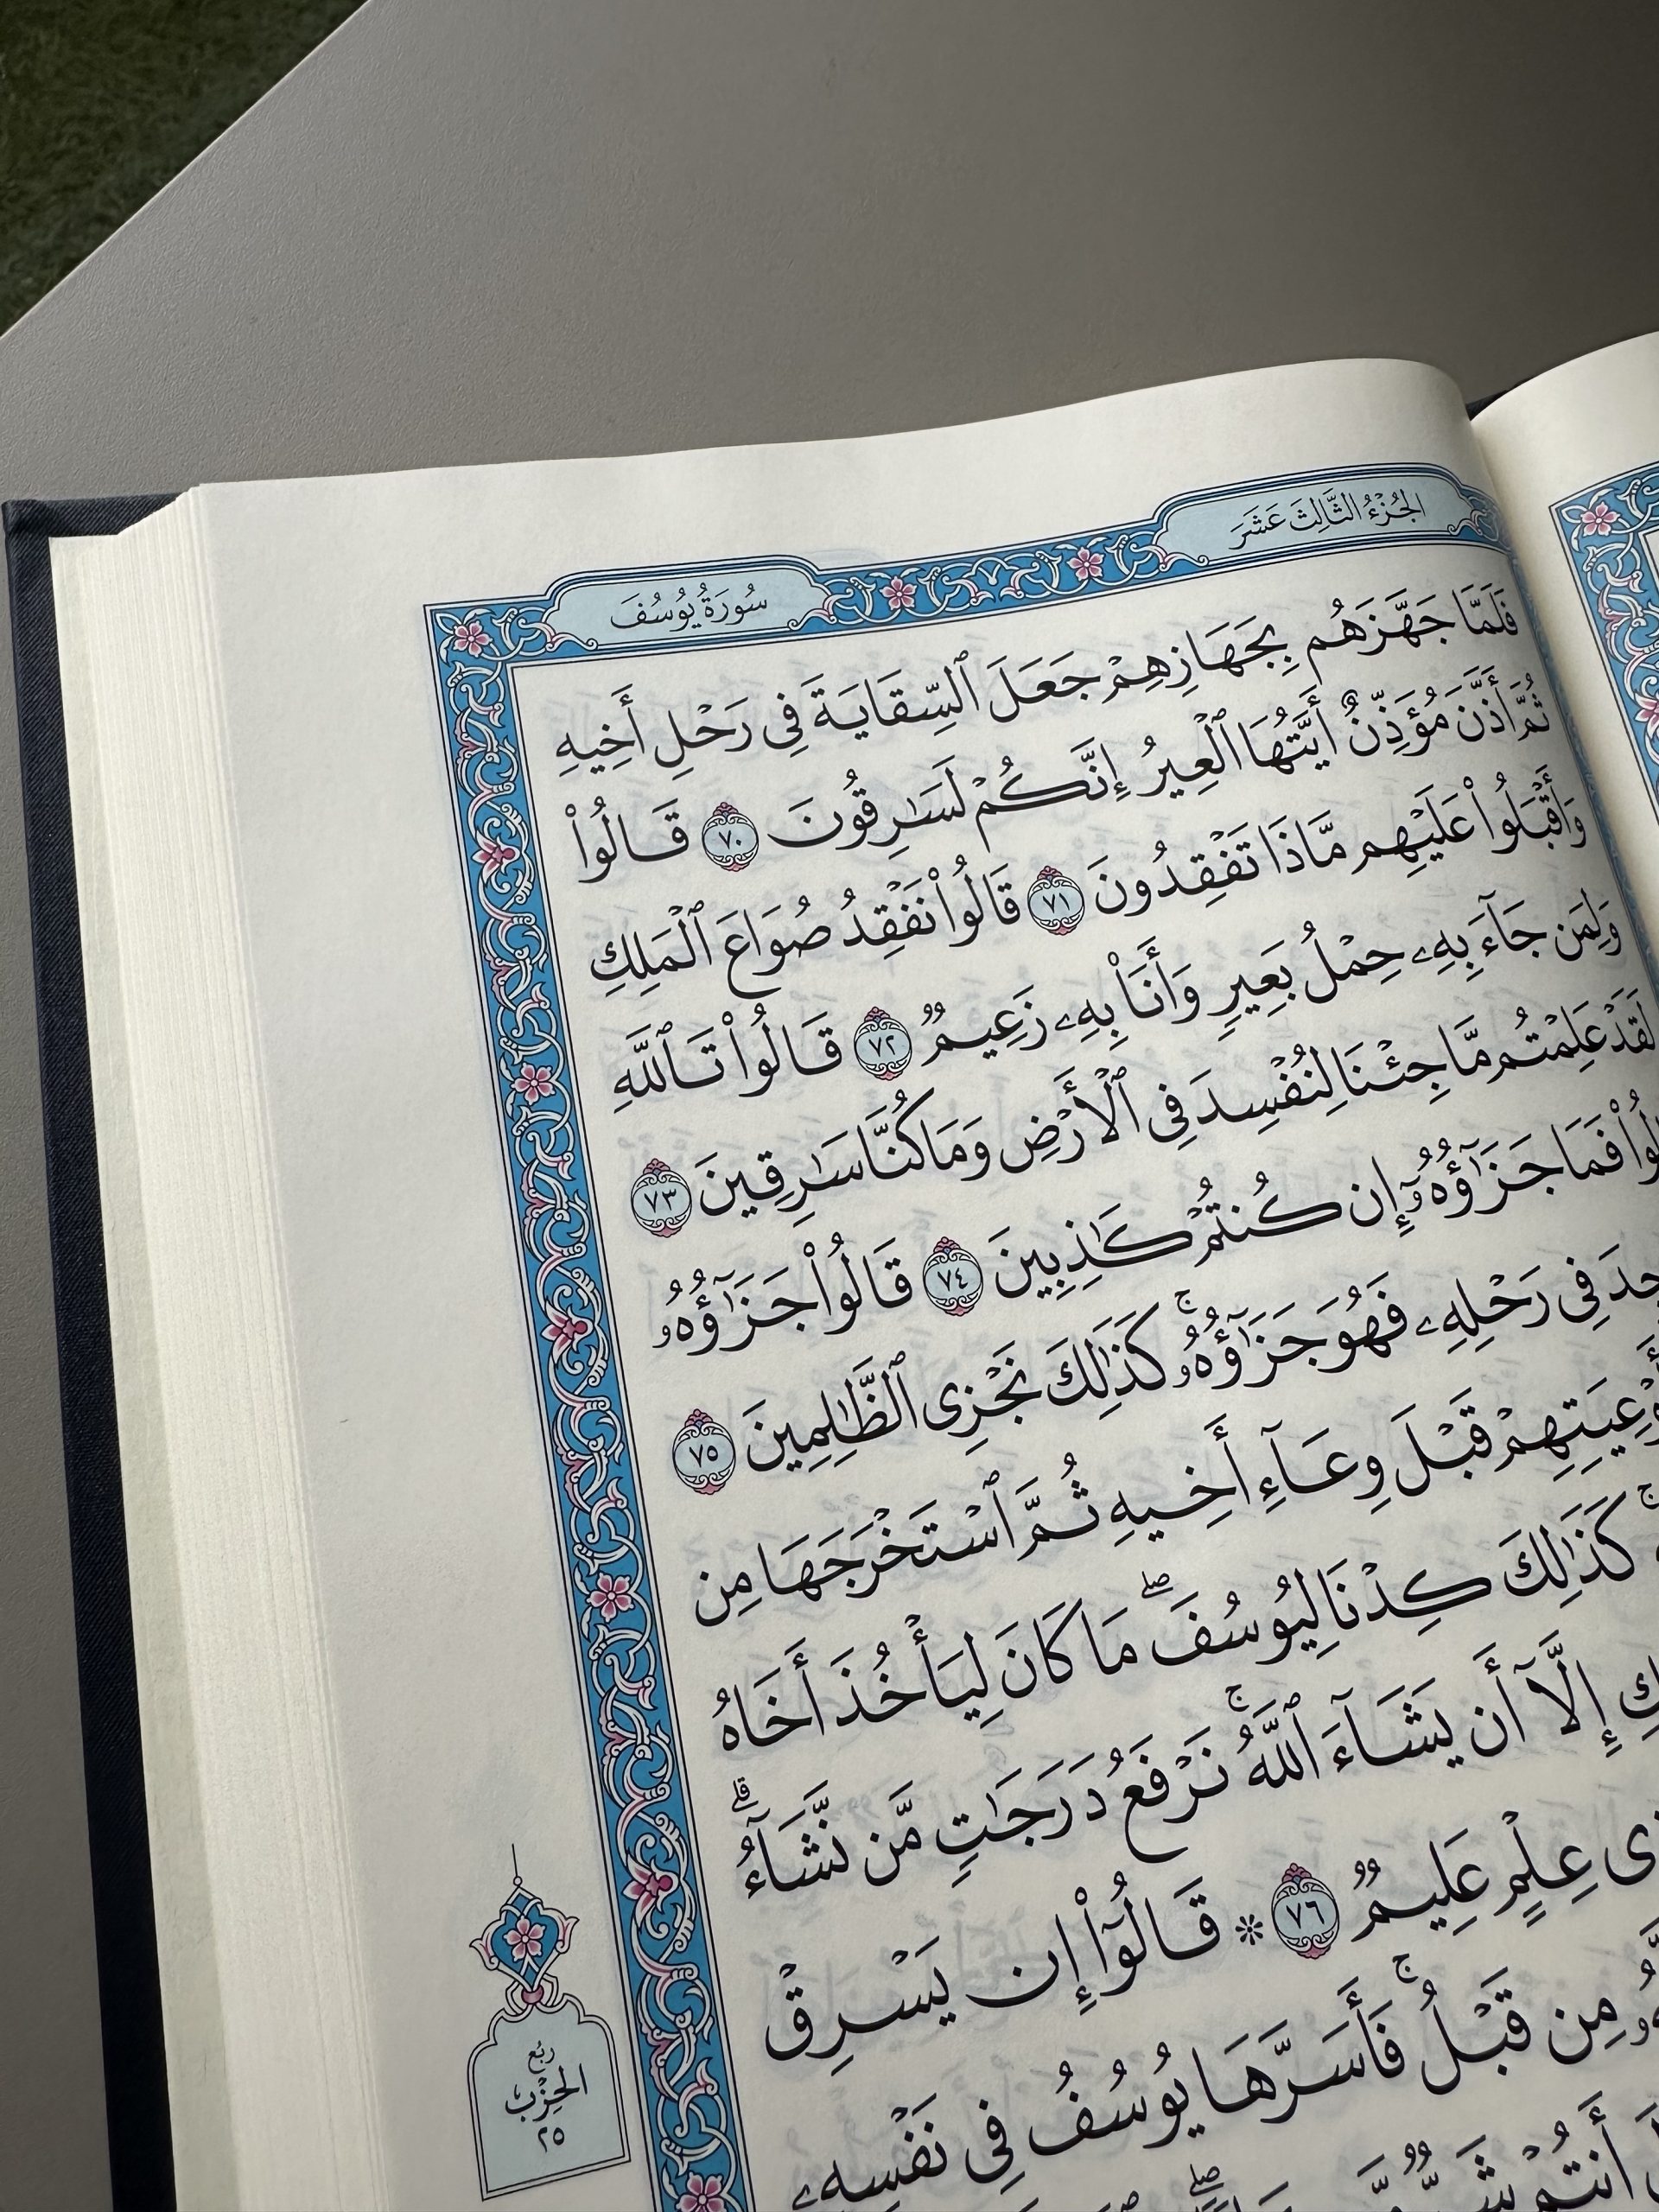 الجُزْءُ الثَّالِثَ عَشَرَ
سُورَةُ يُوسُفَ
فَلَمَّا جَهَّزَهُم بِجَهَازِهِمْ جَعَلَ ٱلسِّقَايَةَ فِى رَحْلِ أَخِيهِ
ثُمَّ أَذَّنَ مُؤَذِّنٌ أَيَّتُهَا ٱلْعِيرُ إِنَّكُمْ لَسَٰرِقُونَ ٧٠ قَالُوا۟
وَأَقْبَلُوا۟ عَلَيْهِم مَّاذَا تَفْقِدُونَ ٧١ قَالُوا۟ نَفْقِدُ صُوَاعَ ٱلْمَلِكِ
وَلِمَن جَآءَ بِهِۦ حِمْلُ بَعِيرٍ وَأَنَا۠ بِهِۦ زَعِيمٌ ٧٢ قَالُوا۟ تَٱللَّهِ
لَقَدْ عَلِمْتُم مَّا جِئْنَا لِنُفْسِدَ فِى ٱلْأَرْضِ وَمَا كُنَّا سَٰرِقِينَ ٧٣
فَمَا جَزَٰٓؤُهُۥٓ إِن كُنتُمْ كَٰذِبِينَ ٧٤ قَالُوا۟ جَزَٰٓؤُهُۥ
فِى رَحْلِهِۦ فَهُوَ جَزَٰٓؤُهُۥ ۚ كَذَٰلِكَ نَجْزِى ٱلظَّٰلِمِينَ ٧٥
قَبْلَ وِعَآءِ أَخِيهِ ثُمَّ ٱسْتَخْرَجَهَا مِن
كَذَٰلِكَ كِدْنَا لِيُوسُفَ ۖ مَا كَانَ لِيَأْخُذَ أَخَاهُ
إِلَّآ أَن يَشَآءَ ٱللَّهُ ۚ نَرْفَعُ دَرَجَٰتٍ مَّن نَّشَآءُ ۗ
عِلْمٍ عَلِيمٌ ٧٦ ۞ قَالُوٓا۟ إِن يَسْرِقْ
مِن قَبْلُ ۚ فَأَسَرَّهَا يُوسُفُ فِى نَفْسِهِۦ
أَنتُمْ
رُبع
الحِزْب
٢٥